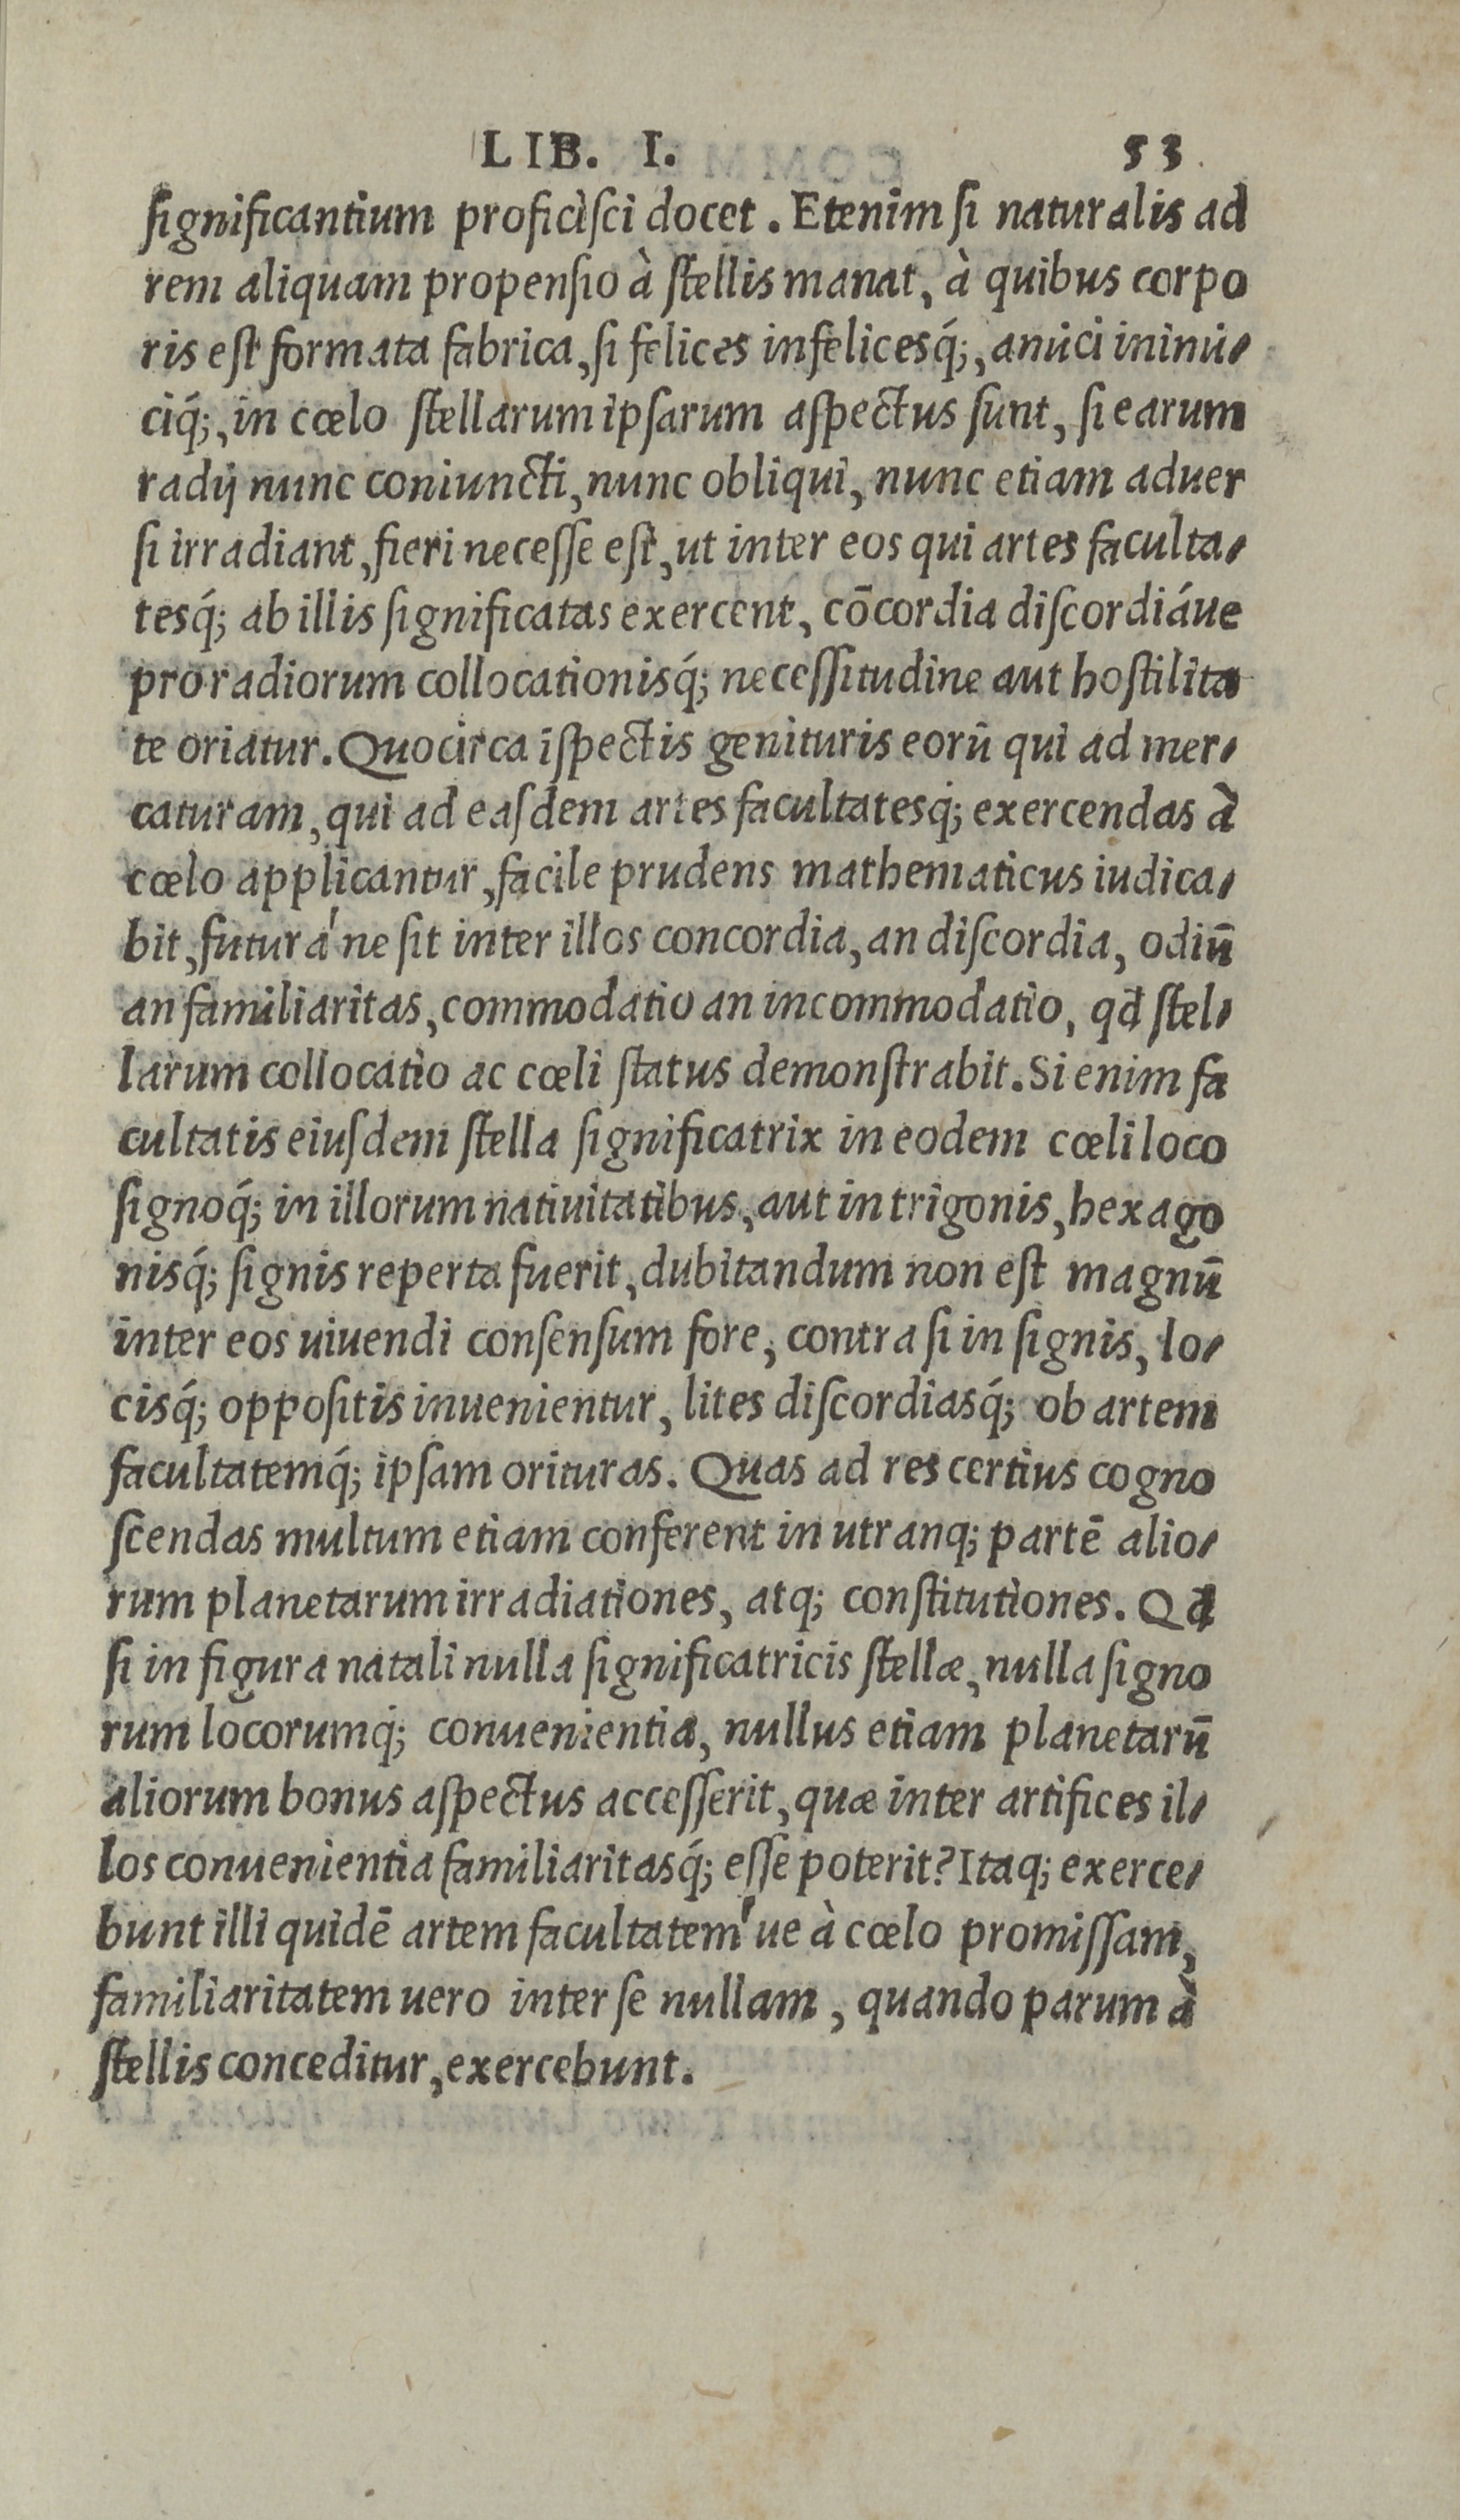 LIB. I. 53
ſignificantium proficiſci docet. Etenim ſi naturalis ad
rem aliquam propenſio à ſtellis manat, à quibus corpo
ris eſt formata fabrica, ſi felices infelicesq́;, amici inimi-
ciq́;, in cœlo ſtellarum ipſarum aſpectus ſunt, ſi earum
radij nunc coniuncti, nunc obliqui, nunc etiam aduer
ſi irradiant, fieri neceſſe eſt, ut inter eos qui artes faculta-
tesq́; ab illis ſignificatas exercent, cōcordia diſcordiáue
pro radiorum collocationisq́; neceſſitudine aut hoſtilita
te oriatur. Quocirca īſpectis genituris eorū qui ad mer-
caturam, qui ad eaſdem artes facultatesq́; exercendas à
cœlo applicantur, facile prudens mathematicus iudica-
bit, futurá ne ſit inter illos concordia, an diſcordia, odiū
an familiaritas, commodatio an incommodatio, qđ ſtel-
larum collocatio ac cœli ſtatus demonſtrabit. Si enim fa
cultatis eiuſdem ſtella ſignificatrix in eodem cœli loco
ſignoq́; in illorum natiuitatibus, aut in trigonis, hexago
nisq́; ſignis reperta fuerit, dubitandum non eſt magnū
inter eos uiuendi conſenſum fore, contra ſi in ſignis, lo-
cisq́; oppoſitis inuenientur, lites diſcordiasq́; ob artem
facultatemq́; ipſam orituras. Quas ad res certius cogno
ſcendas multum etiam conferent in utranq; partē alio-
rum planetarum irradiationes, atq; conſtitutiones. Qđ
ſi in figura natali nulla ſignificatricis ſtellæ, nulla ſigno
rum locorumq́; conuenientia, nullus etiam planetarū
aliorum bonus aſpectus acceſſerit, quæ inter artifices il-
los conuenientia familiaritasq́; eſſe poterit? Itaq; exerce-
bunt illi quidē artem facultatem'ue à cœlo promiſſam,
familiaritatem uero inter ſe nullam, quando parum à
ſtellis conceditur, exercebunt.